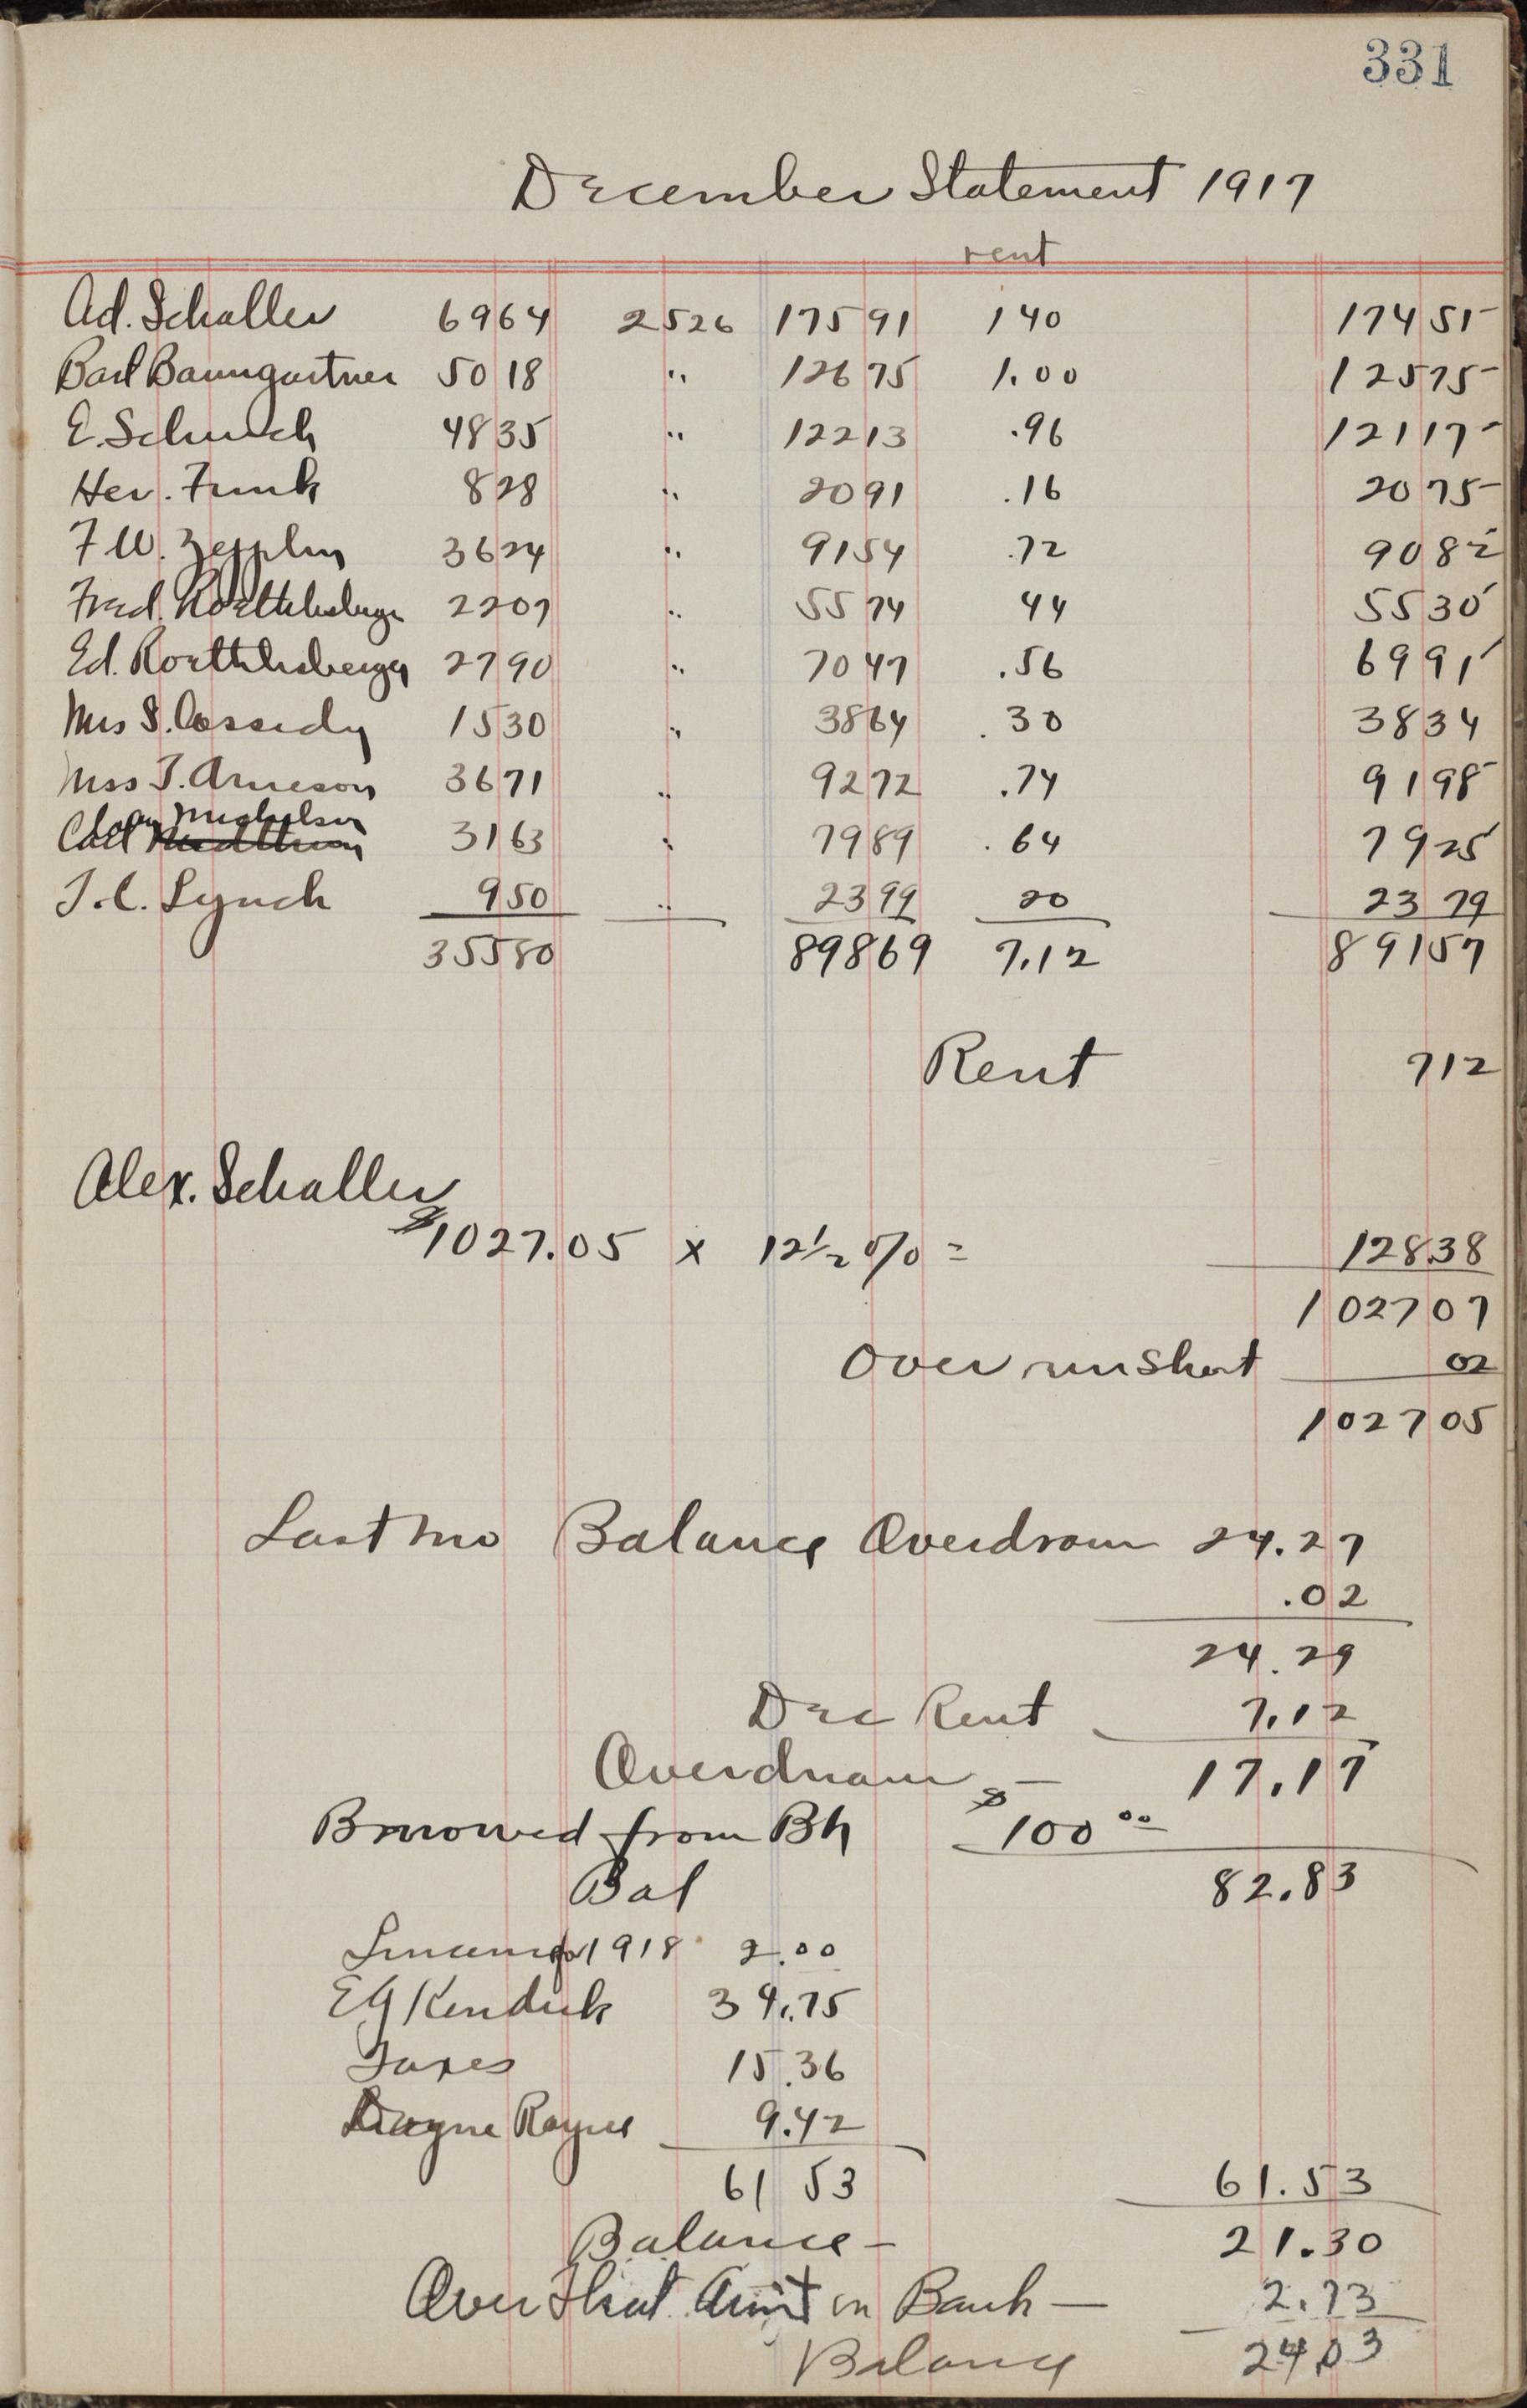 331
December Statement 1917
rent
Ad. Schaller 6964 2526 17591 140 17451
Bad Baumgartner 5018 " 12675 1.00 12575
E. Schuch 4835 " 12213 .96 12117
Her. Funk 828 " 2091 .16 2075
F W. Zepplin 3624 " 9154 .72 9082
Fred. Roethlisberger 2207 " 5574 44 5530
Ed. Roethlisberger 2790 " 7047 .56 6991
Mrs S. Cassidy 1530 " 3864 .30 3834
Mrs T. Arneson 3671 " 9272 .74 9198
Michelson
Carl 3163 " 7989 .64 7925
T. C. Lynch 950 " 2399 20 2379
35580 89869 7.12 89157
Rent 712
Alex. Schaller
$1027.05 x 12½% = 12838
102707
Over run Short 02
102705
Last mo Balance Overdrawn 24.27
.02
24.29
Dec Rent 7.12
Overdrawn — 17.17
Borrowed from Bk $100 00
82.83
Bal
1918 2.00
E G Kendrick 34.75
Taxes 15.36
9.42
61 53 61.53
Balance — 21.30
Over Amt in Bank — 2.73
Balance 24.03